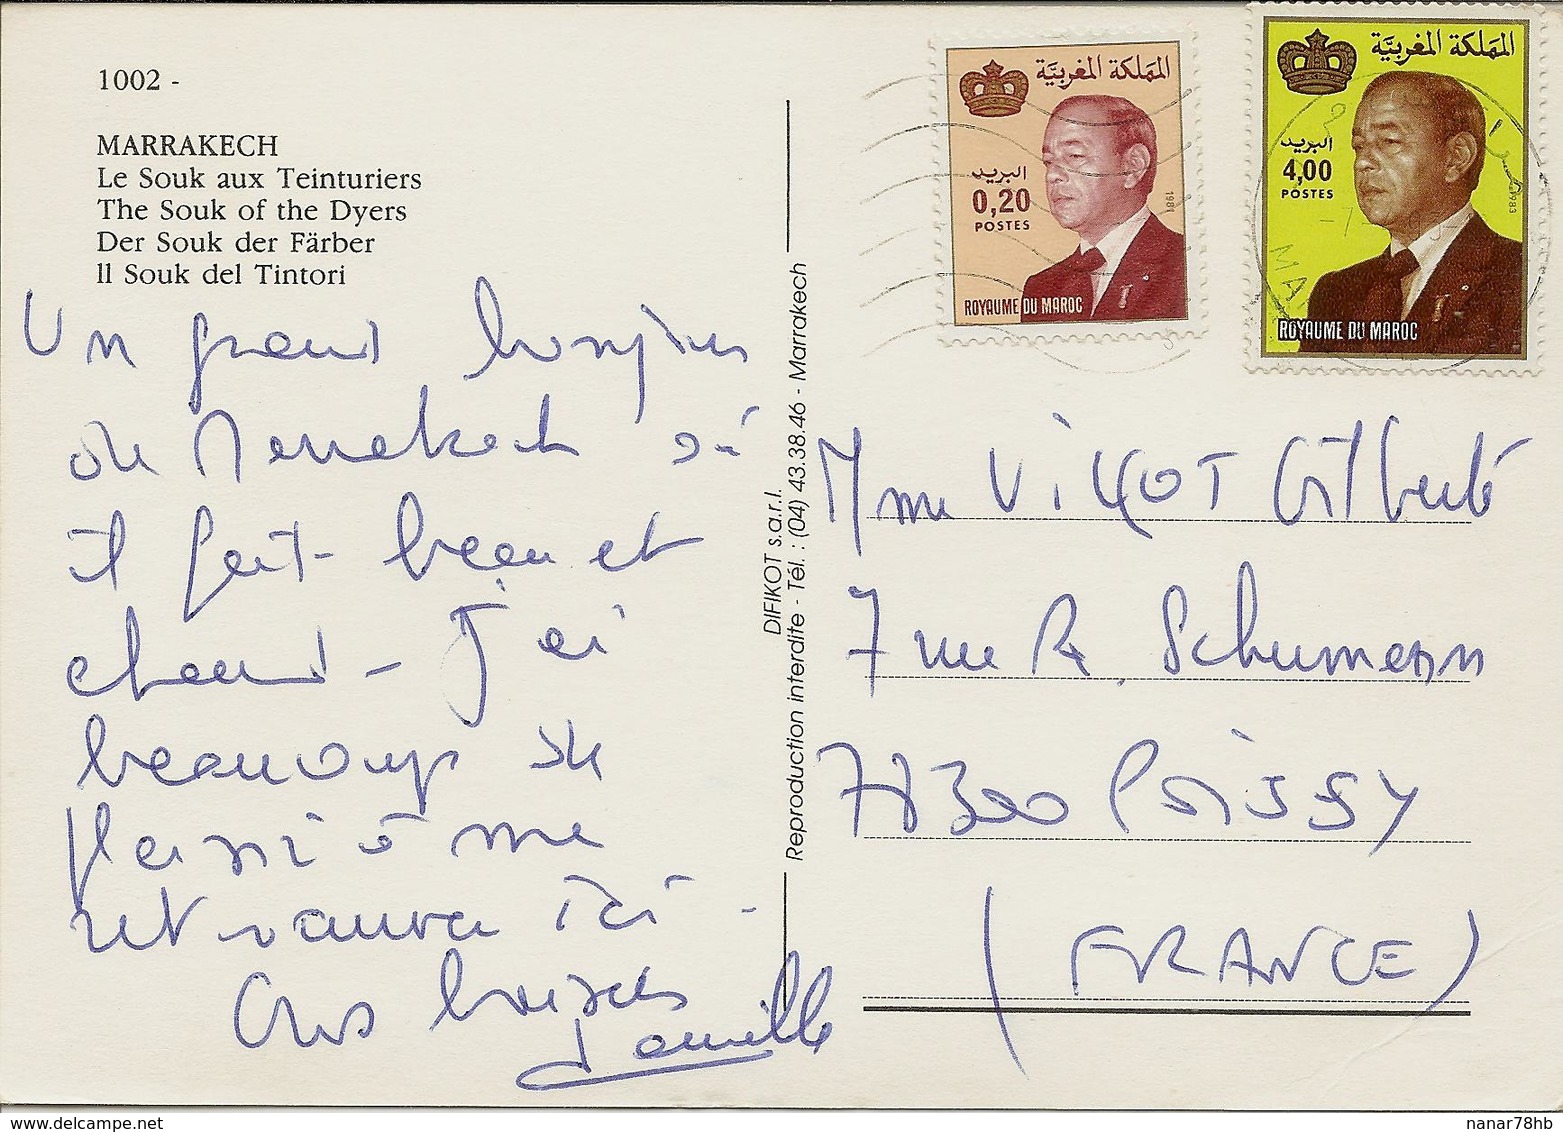 1002 -
MARRAKECH
Le Souk aux Teinturiers
The Souk of the Dyers
Der Souk der Färber
Il Souk del Tintori
Un grand bonjour
de Marrakech où
il fait beau et
chaud - J'ai
beaucoup de
plaisir à me
retrouver ici -
Gros baisers
DIFIKOT s.a.r.l.
Reproduction interdite - Tél. : (04) 43.38.46 - Marrakech
المملكة المغربية
البريد
0,20
POSTES
1981
ROYAUME DU MAROC
المملكة المغربية
البريد
4,00
POSTES
1983
ROYAUME DU MAROC
Mme VIGOT Gilberte
7 rue R. Schumann
78300 POISSY
(FRANCE)
delcampe.net
nanar78hb